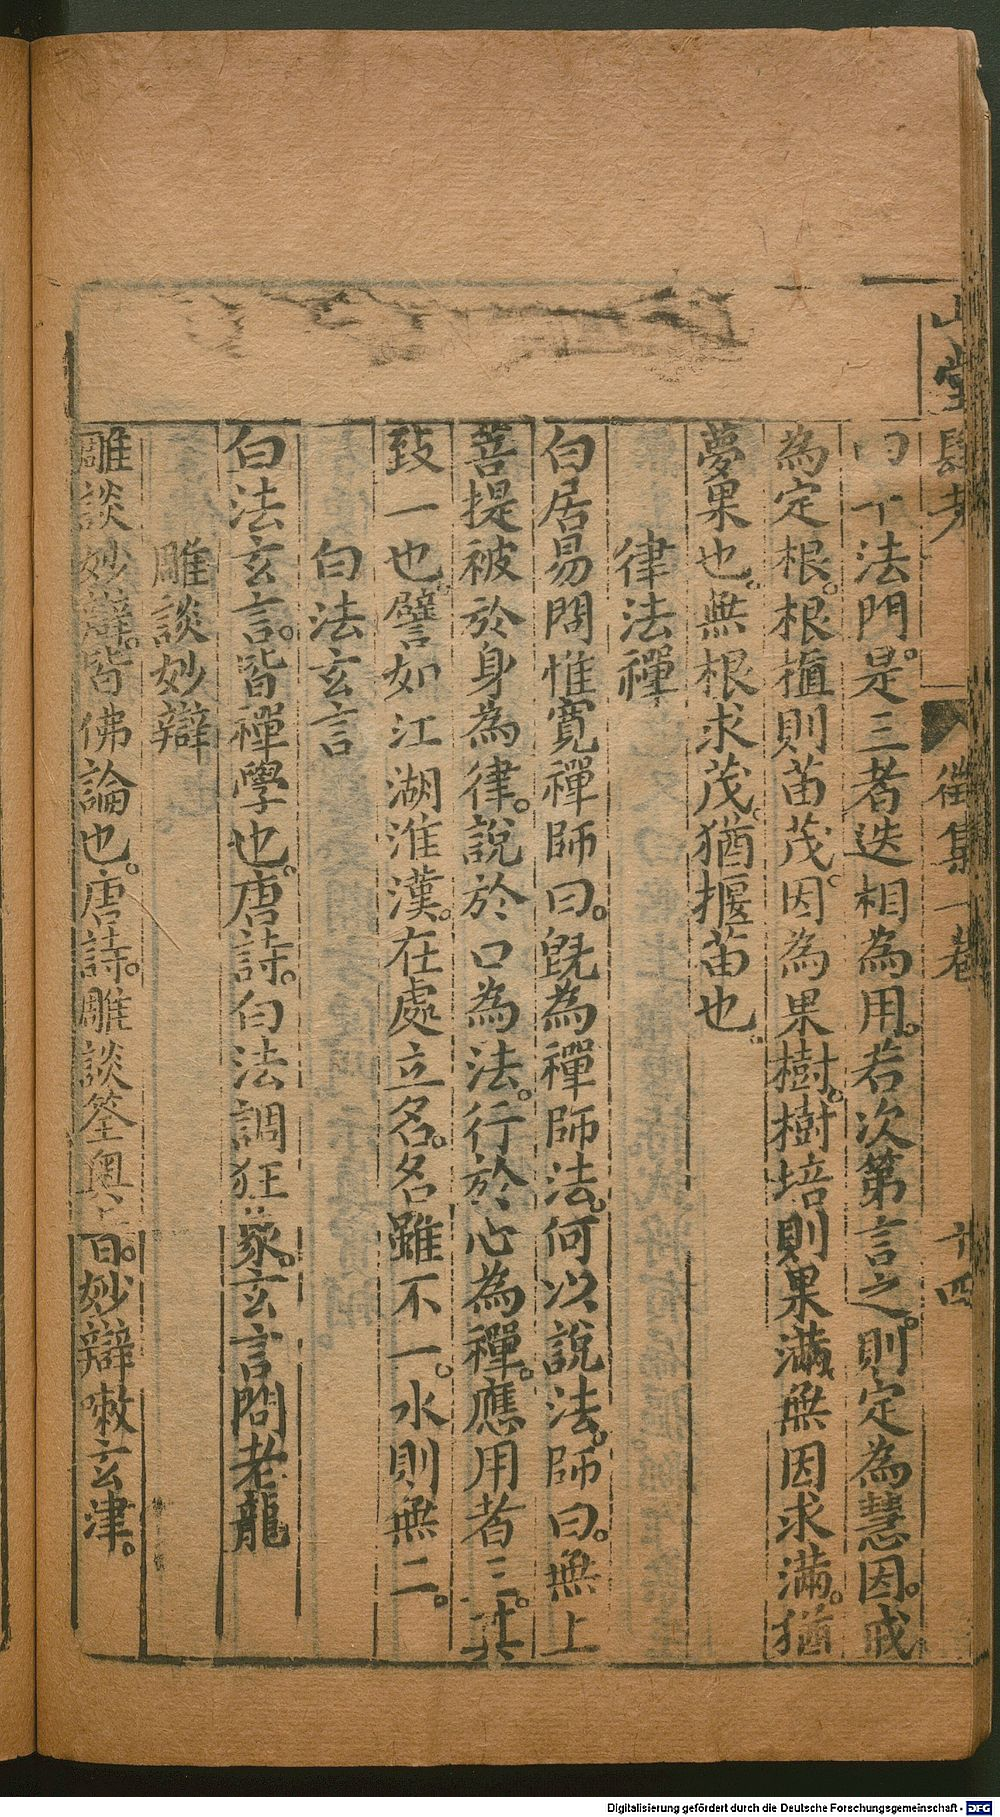 山堂肆考 徵集一卷 十四
法門。是三者迭相為用。若次第言之。則定為慧因。戒
為定根。根植則苗茂。因為果樹。樹培則果滿。無因求滿。猶
夢果也。無根求茂。猶揠苗也。
律法禪
白居易問惟寬禪師曰。旣為禪師法。何以說法。師曰。無上
菩提被於身為律。說於口為法。行於心為禪。應用者三。其
致一也。譬如江湖淮漢。在處立名。名雖不一。水則無二。
白法玄言
白法玄言。皆禪學也。唐詩。白法調狂象。玄言問老龍
雕談妙辯
雕談妙辯。皆佛論也。唐詩。雕談筌奧旨。妙辯漱玄津。
Digitalisierung gefördert durch die Deutsche Forschungsgemeinschaft - DFG